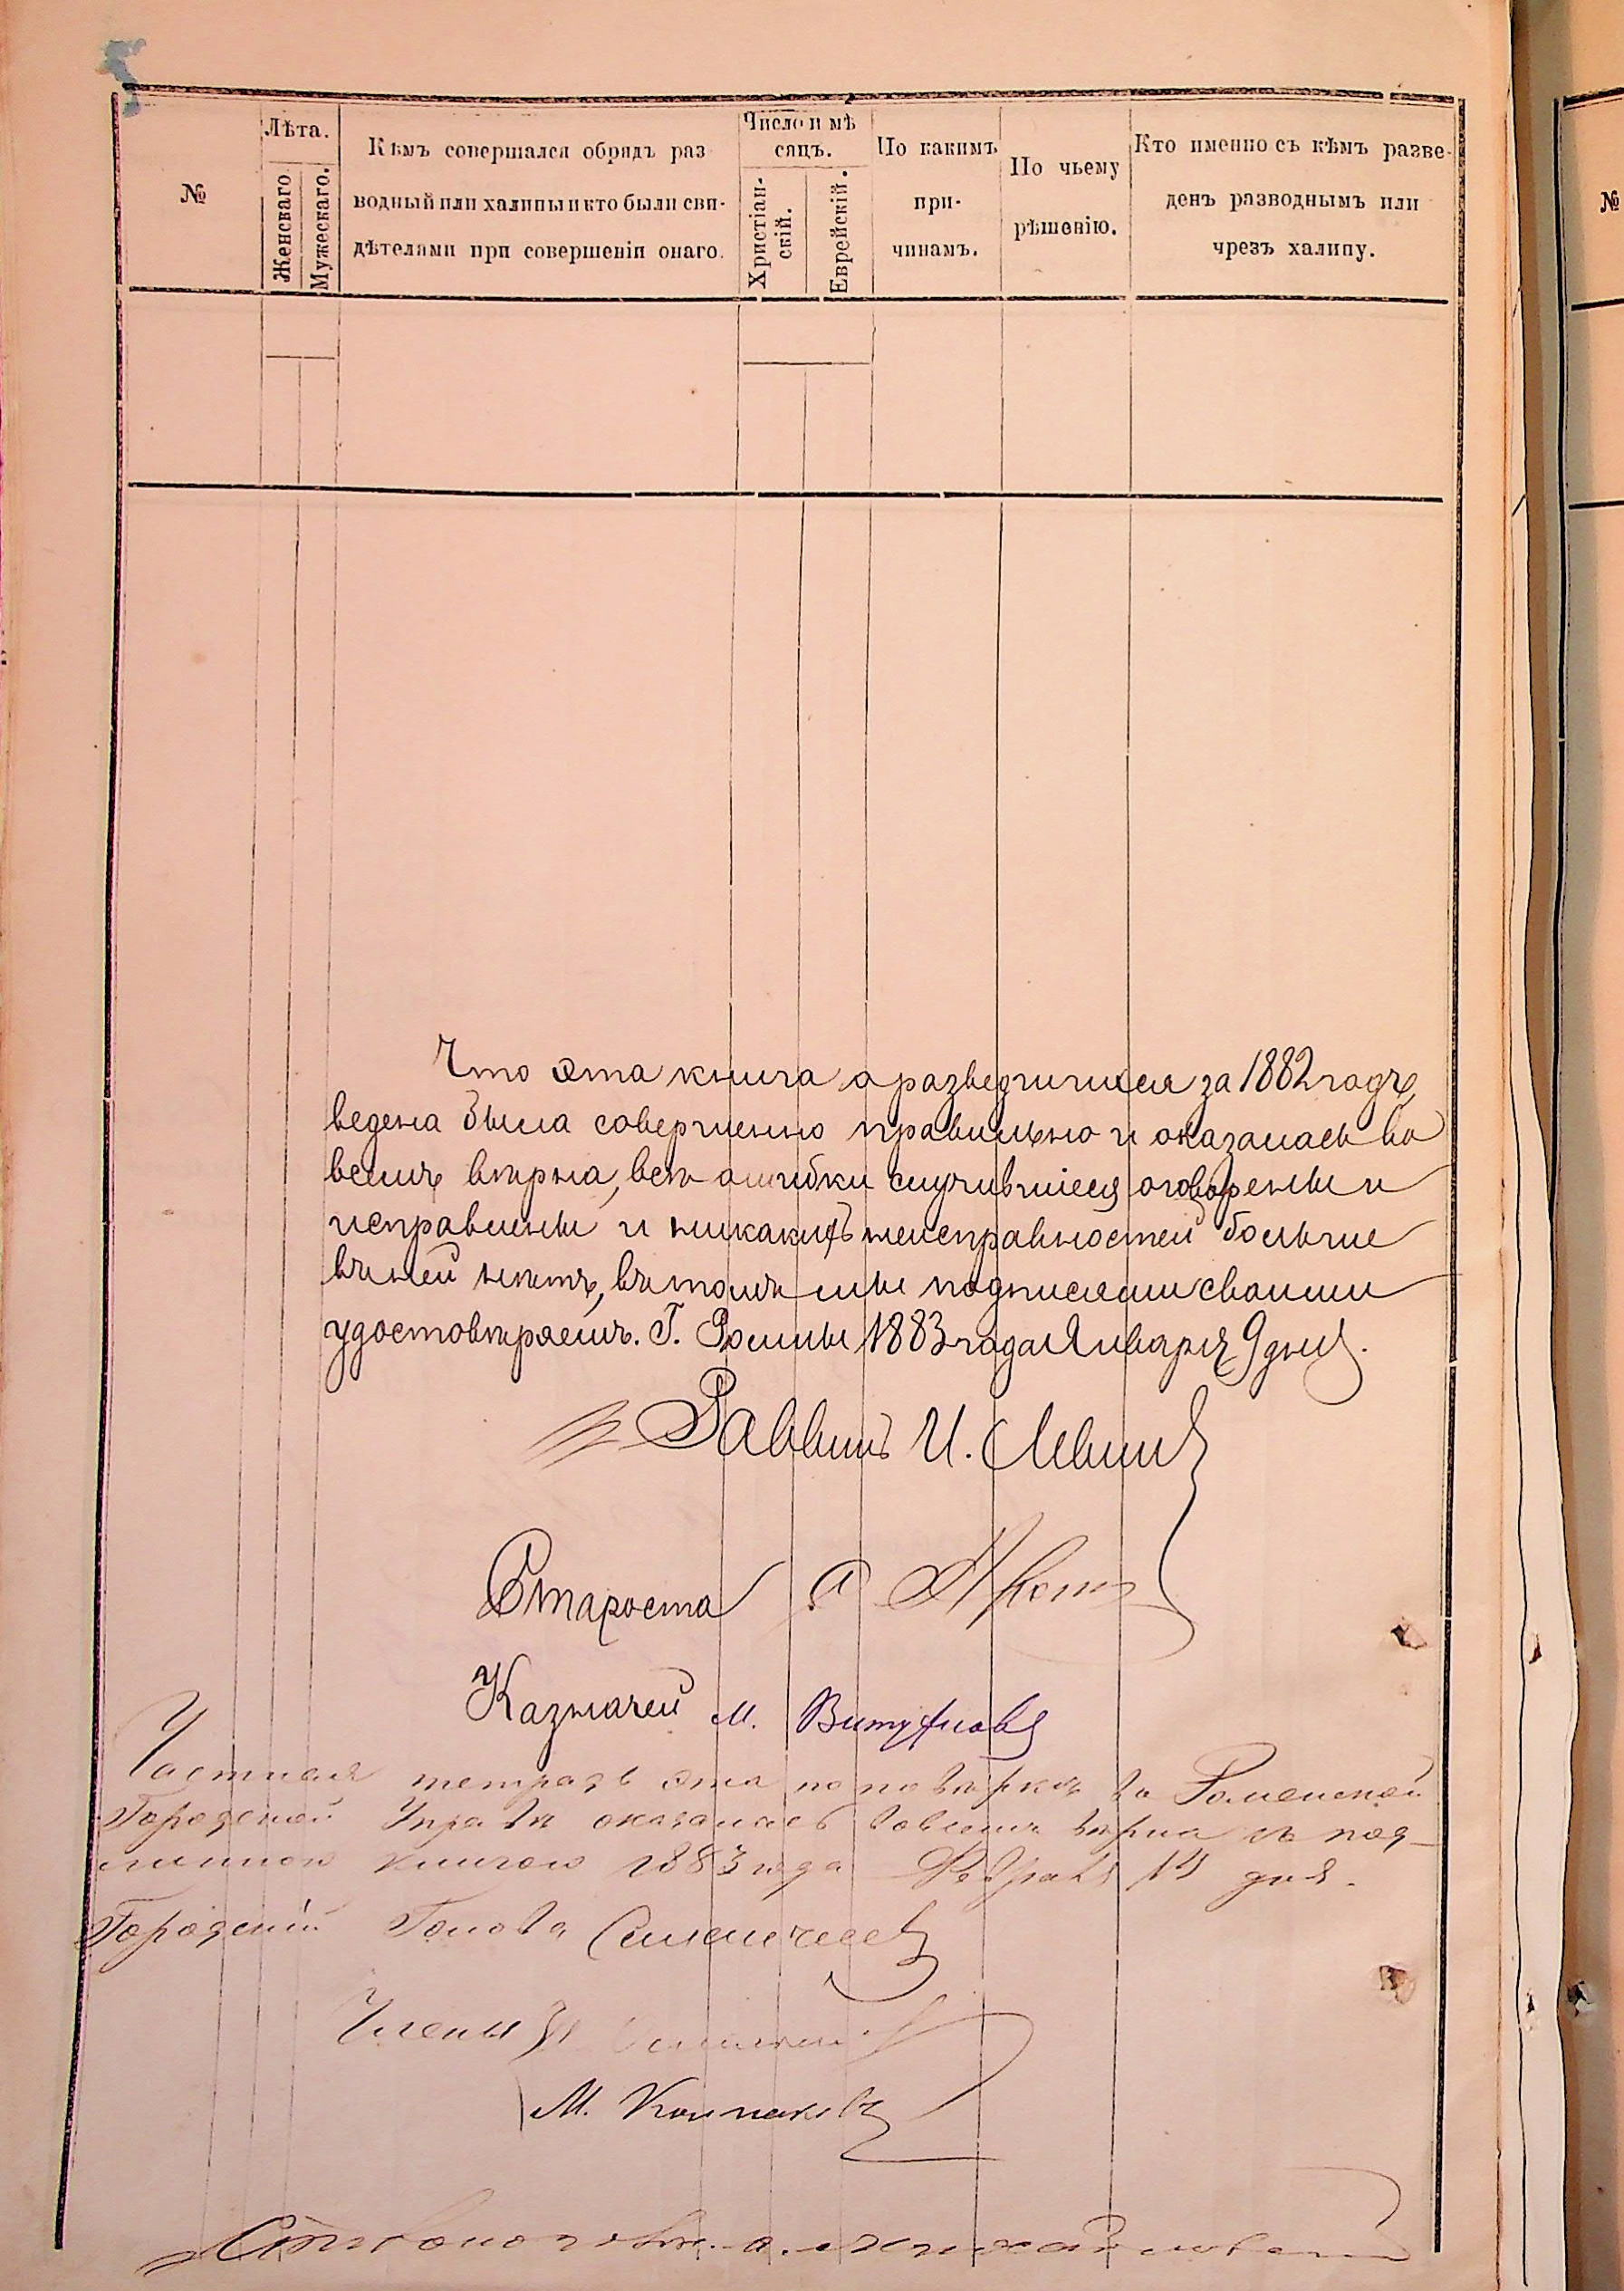 №
Лѣта.
Женскаго
Мужескаго.
Кѣмъ совершался обрядъ раз
водный или халипы и кто были сви-
дѣтелями при совершеніи онаго.
Число и мѣ
сяцъ.
Христіан-
скій.
Еврейскій.
По какимъ
при-
чинамъ.
По чьему
рѣшенію.
Кто именно съ кѣмъ разве-
денъ разводнымъ или
чрезъ халипу.
№
Что эта книга о разведшихся за 1882 годъ,
ведена была совершенно правильно и оказалась во
всемъ вѣрна, всѣ ошибки случившіеся оговорены и
исправлены и никакихъ неисправностей больше
въ ней нѣтъ, въ томъ мы подписями своими
удостовѣряемъ. Г. Ромны 1883 года Января 9 дня.
Раввинъ И. Левин
Староста А
Казначей М.
Частная тетрадь эта по повѣркѣ въ Роменской
Городской Управѣ оказалась вовсемъ вѣрна съ под-
линною книгою 1883 года Февраля 14 дня.
Городской Голова
Члены
М. Колпаковъ